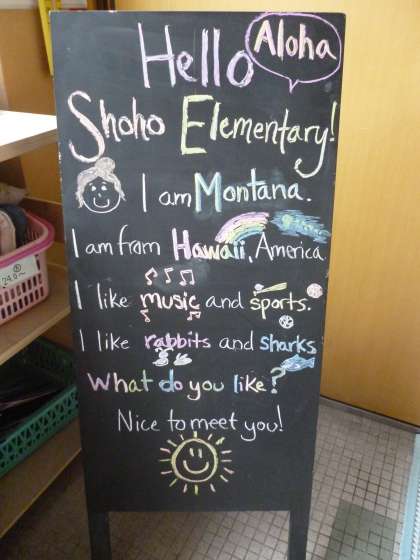 Hello
Aloha
Shoho Elementary!
I am Montana.
I am from Hawaii, America
I like music and sports.
I like rabbits and sharks
What do you like?
Nice to meet you!